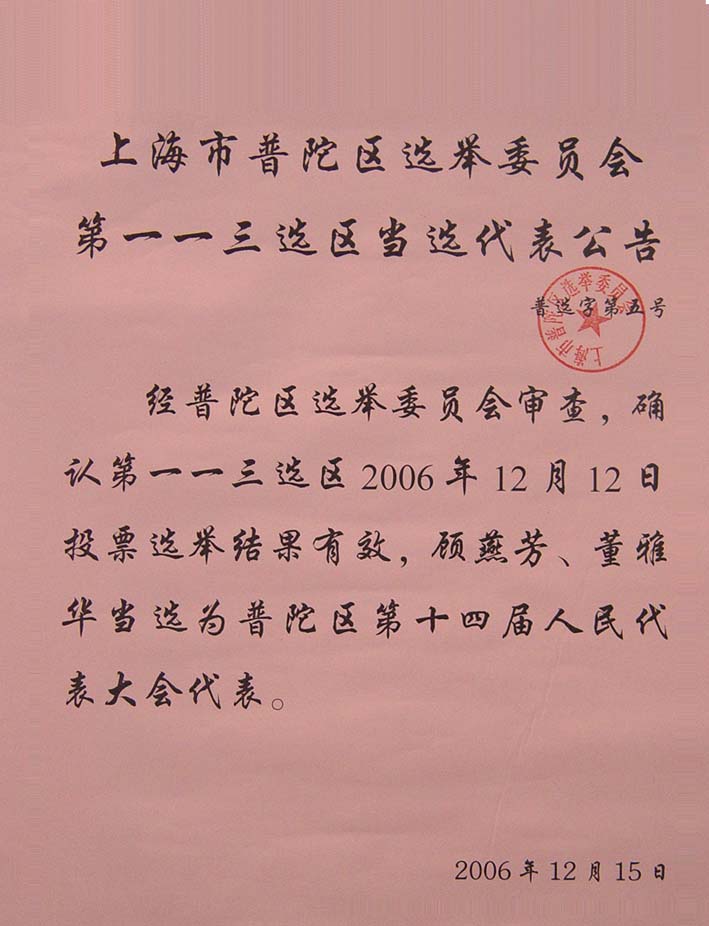 上海市普陀区选举委员会
第一一三选区当选代表公告
普选字第五号
上海市普陀区选举委员会
经普陀区选举委员会审查，确
认第一一三选区2006年12月12日
投票选举结果有效，顾燕芳、董雅
华当选为普陀区第十四届人民代
表大会代表。
2006年12月15日